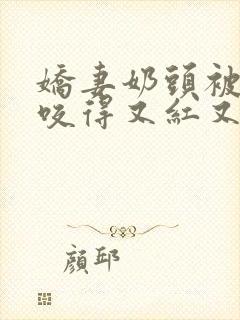 嬌妻奶頭被
咬得又紅又
顏邱